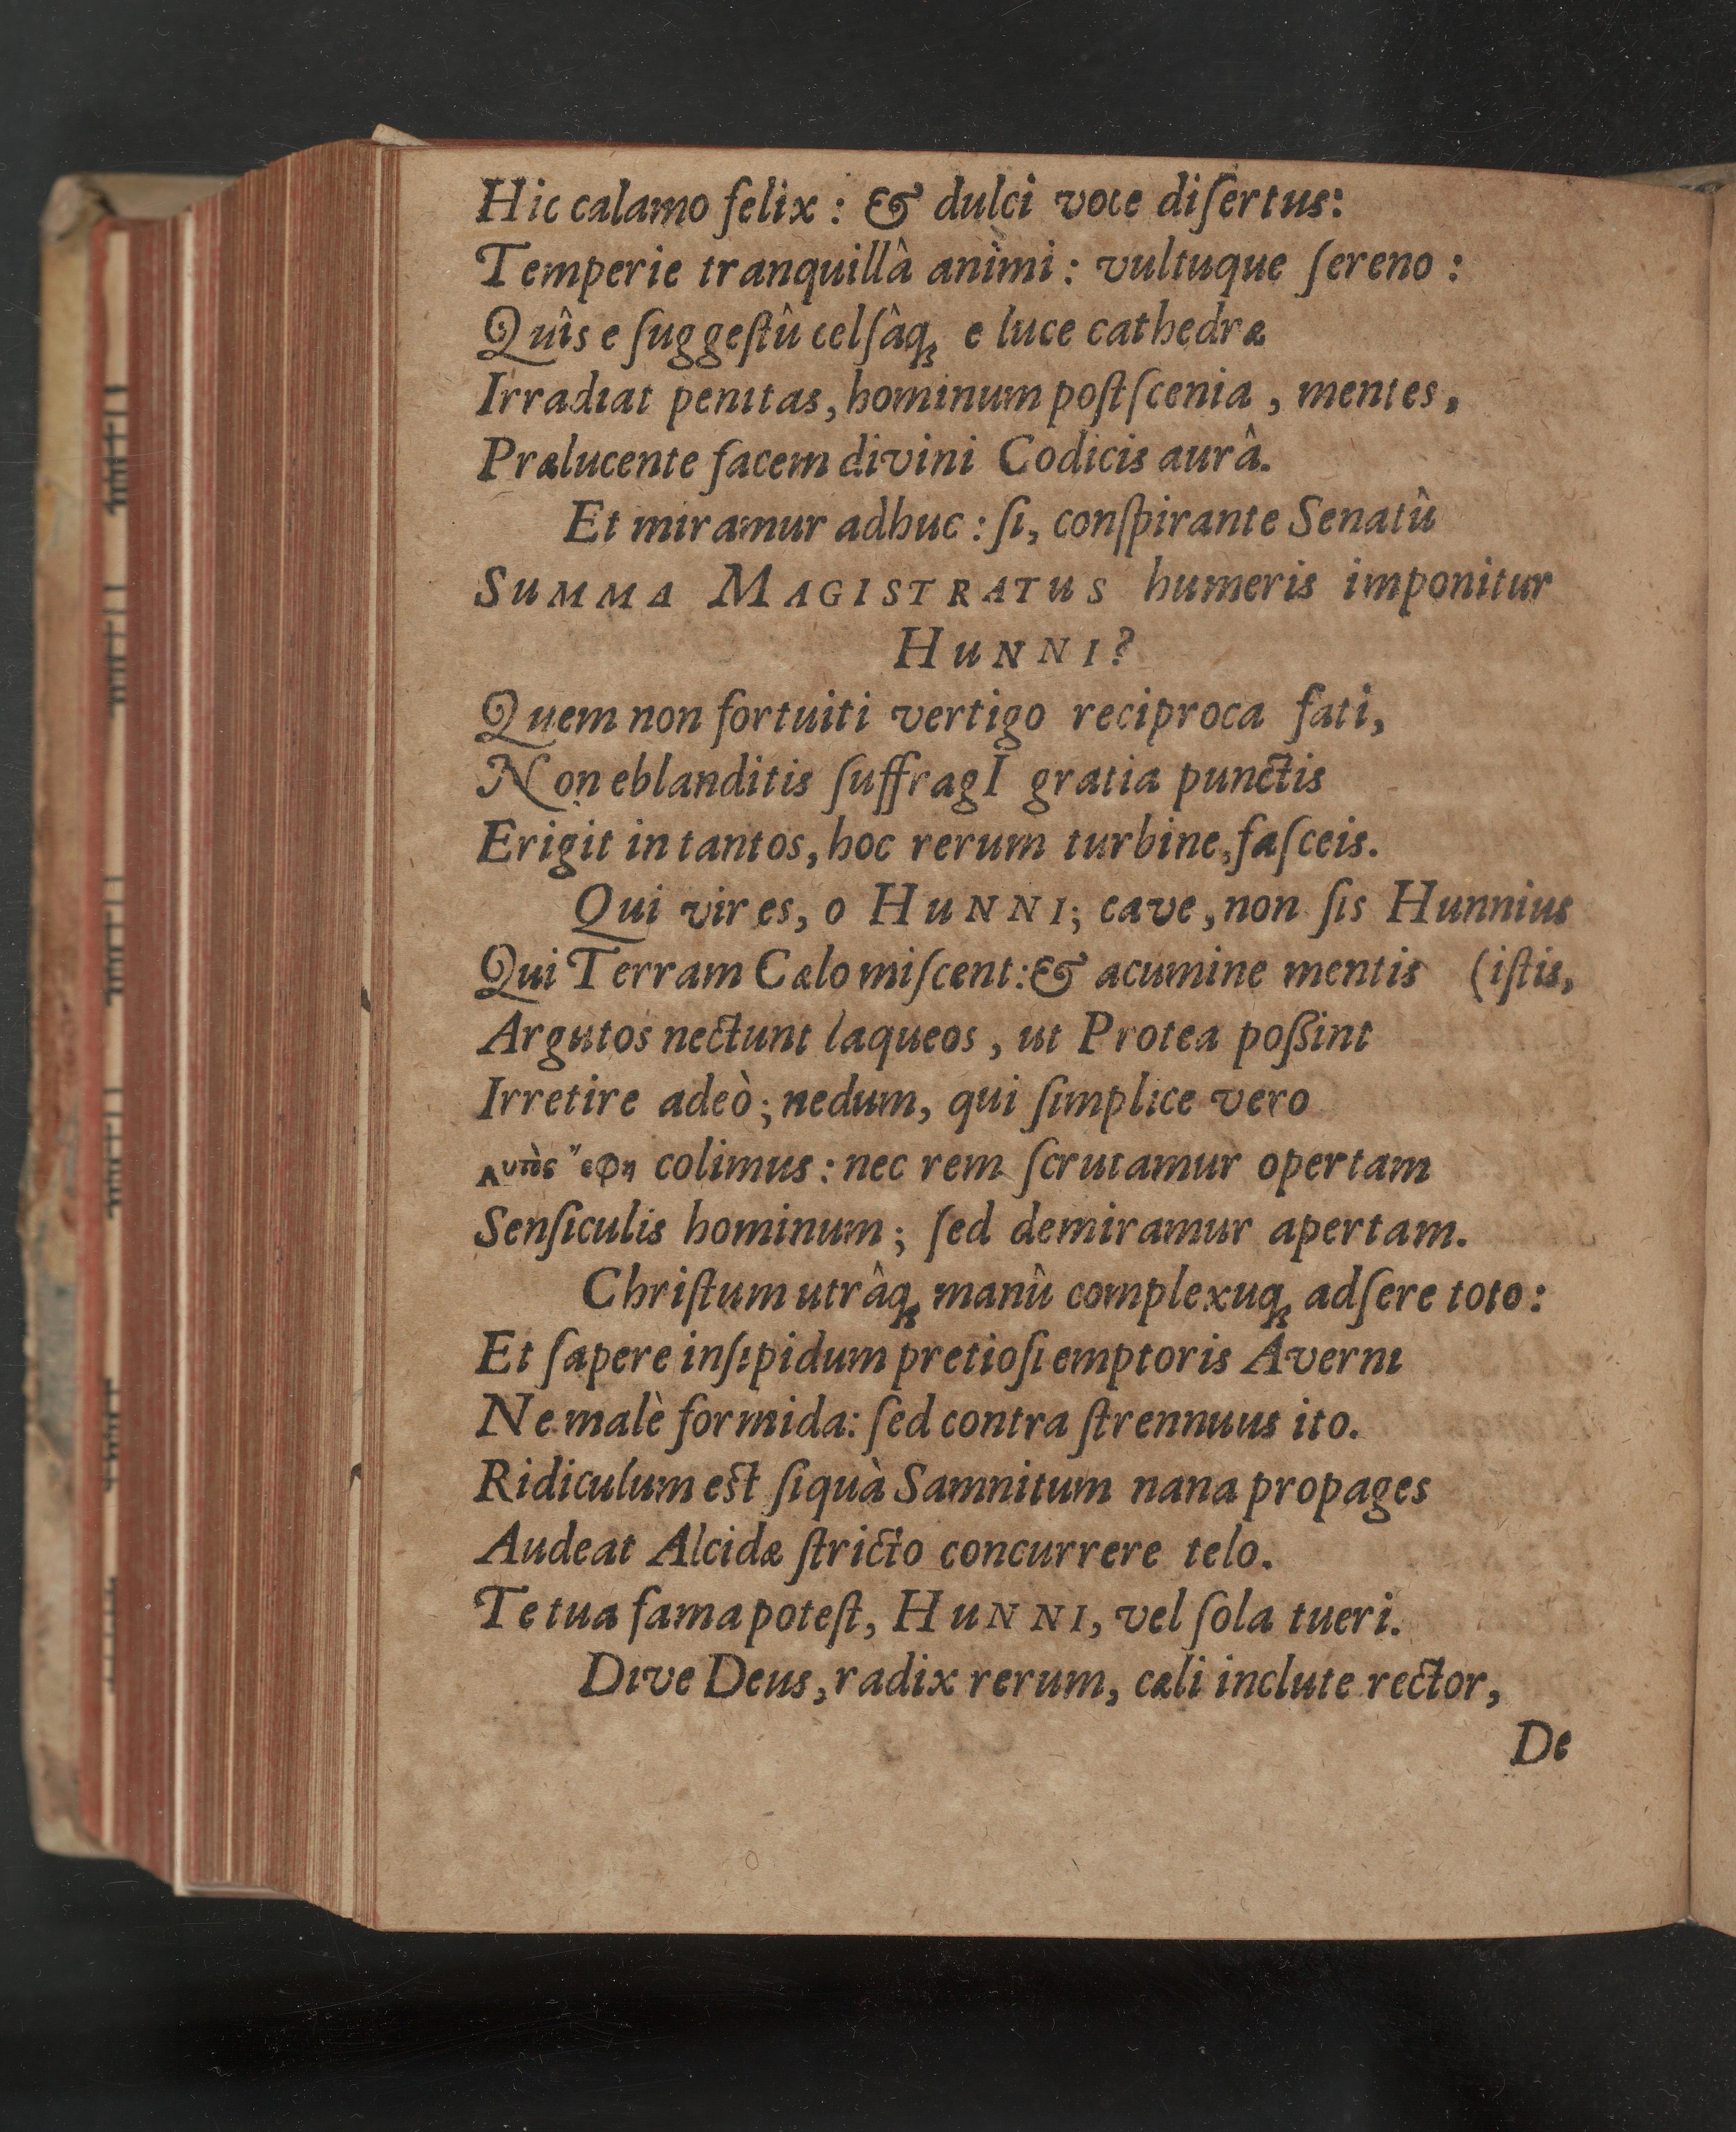 Hic calamo felix: & dulci voce diſertus:
Temperie tranquillâ animi: vultuque ſereno:
Quîs e ſuggeſtû celſâq́ꝫ e luce cathedræ
Irradiat penitas, hominum poſtſcenia, mentes,
Prælucente facem divini Codicis aurâ.
Et miramur adhuc: ſi, conſpirante Senatû
SUMMA MAGISTRATUS humeris imponitur
HUNNI?
Quem non fortuiti vertigo reciproca fati,
Non eblanditis ſuffragI gratia punctis
Erigit in tantos, hoc rerum turbine, faſceis.
Qui vir es, o HUNNI; cave, non ſis Hunnius
Qui Terram Cælo miſcent: & acumine mentis (iſtis,
Argutos nectunt laqueos, ut Protea poßint
Irretire adeò; nedum, qui ſimplice vero
Αυτὸς ἔφη colimus: nec rem ſcrutamur opertam
Senſiculis hominum; ſed demiramur apertam.
Chriſtum utrâqꝫ manû complexuqꝫ adſere toto:
Et ſapere inſipidum pretioſi emptoris Averni
Ne malè formida: ſed contra ſtrennuus ito.
Ridiculum eſt ſiquà Samnitum nana propages
Audeat Alcidæ ſtricto concurrere telo.
Te tua fama poteſt, HUNNI, vel ſola tueri.
Dive Deus, radix rerum, cæli inclute rector,
De